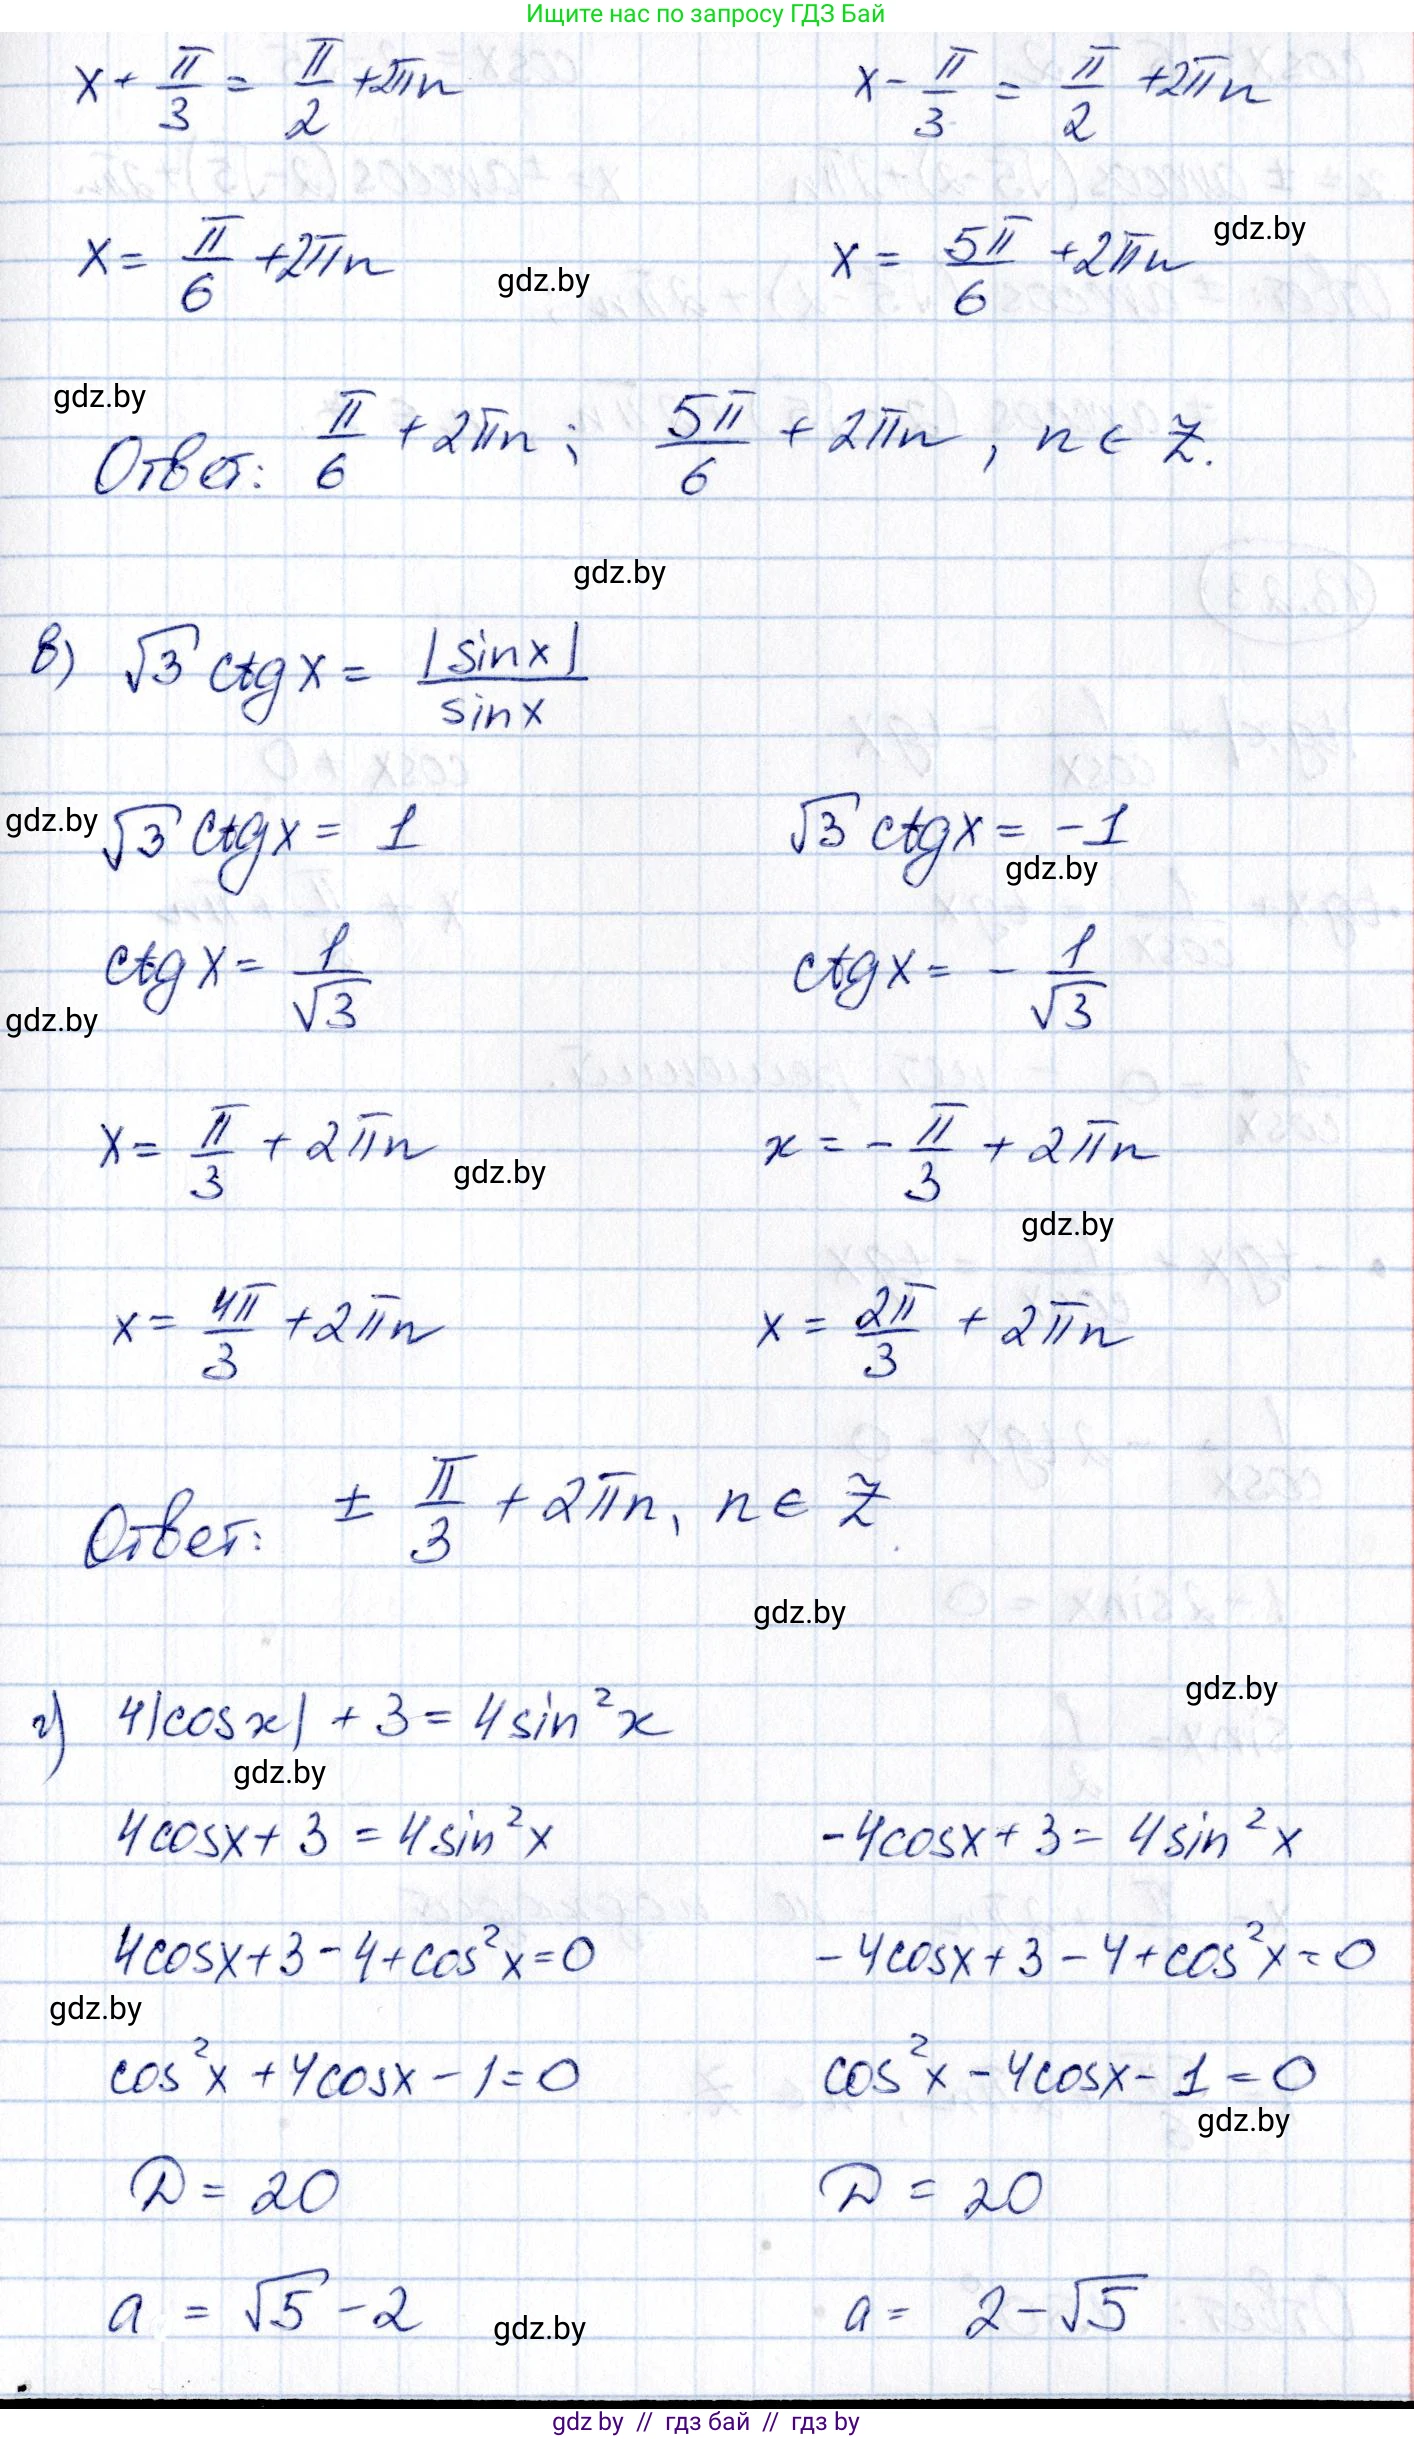 Ищите нас по запросу ГДЗ Бай
x + π/3 = π/2 + 2πn x - π/3 = π/2 + 2πn
gdz.by
x = π/6 + 2πn x = 5π/6 + 2πn
gdz.by
gdz.by
Ответ: π/6 + 2πn ; 5π/6 + 2πn , n ∈ Z.
gdz.by
в) √3 ctgx = |sinx|/sinx
gdz.by √3 ctgx = 1 √3 ctgx = -1
gdz.by
ctgx = 1/√3 ctgx = - 1/√3
gdz.by
x = π/3 + 2πn x = - π/3 + 2πn
gdz.by
gdz.by
x = 4π/3 + 2πn x = 2π/3 + 2πn
Ответ: ± π/3 + 2πn, n ∈ Z
gdz.by
gdz.by
г) 4|cosx| + 3 = 4sin²x
gdz.by
4cosx + 3 = 4sin²x -4cosx + 3 = 4sin²x
4cosx + 3 - 4 + cos²x = 0 -4cosx + 3 - 4 + cos²x = 0
gdz.by
cos²x + 4cosx - 1 = 0 cos²x - 4cosx - 1 = 0
gdz.by
D = 20 D = 20
a = √5 - 2 a = 2 - √5
gdz.by
gdz by // гдз бай // гдз by